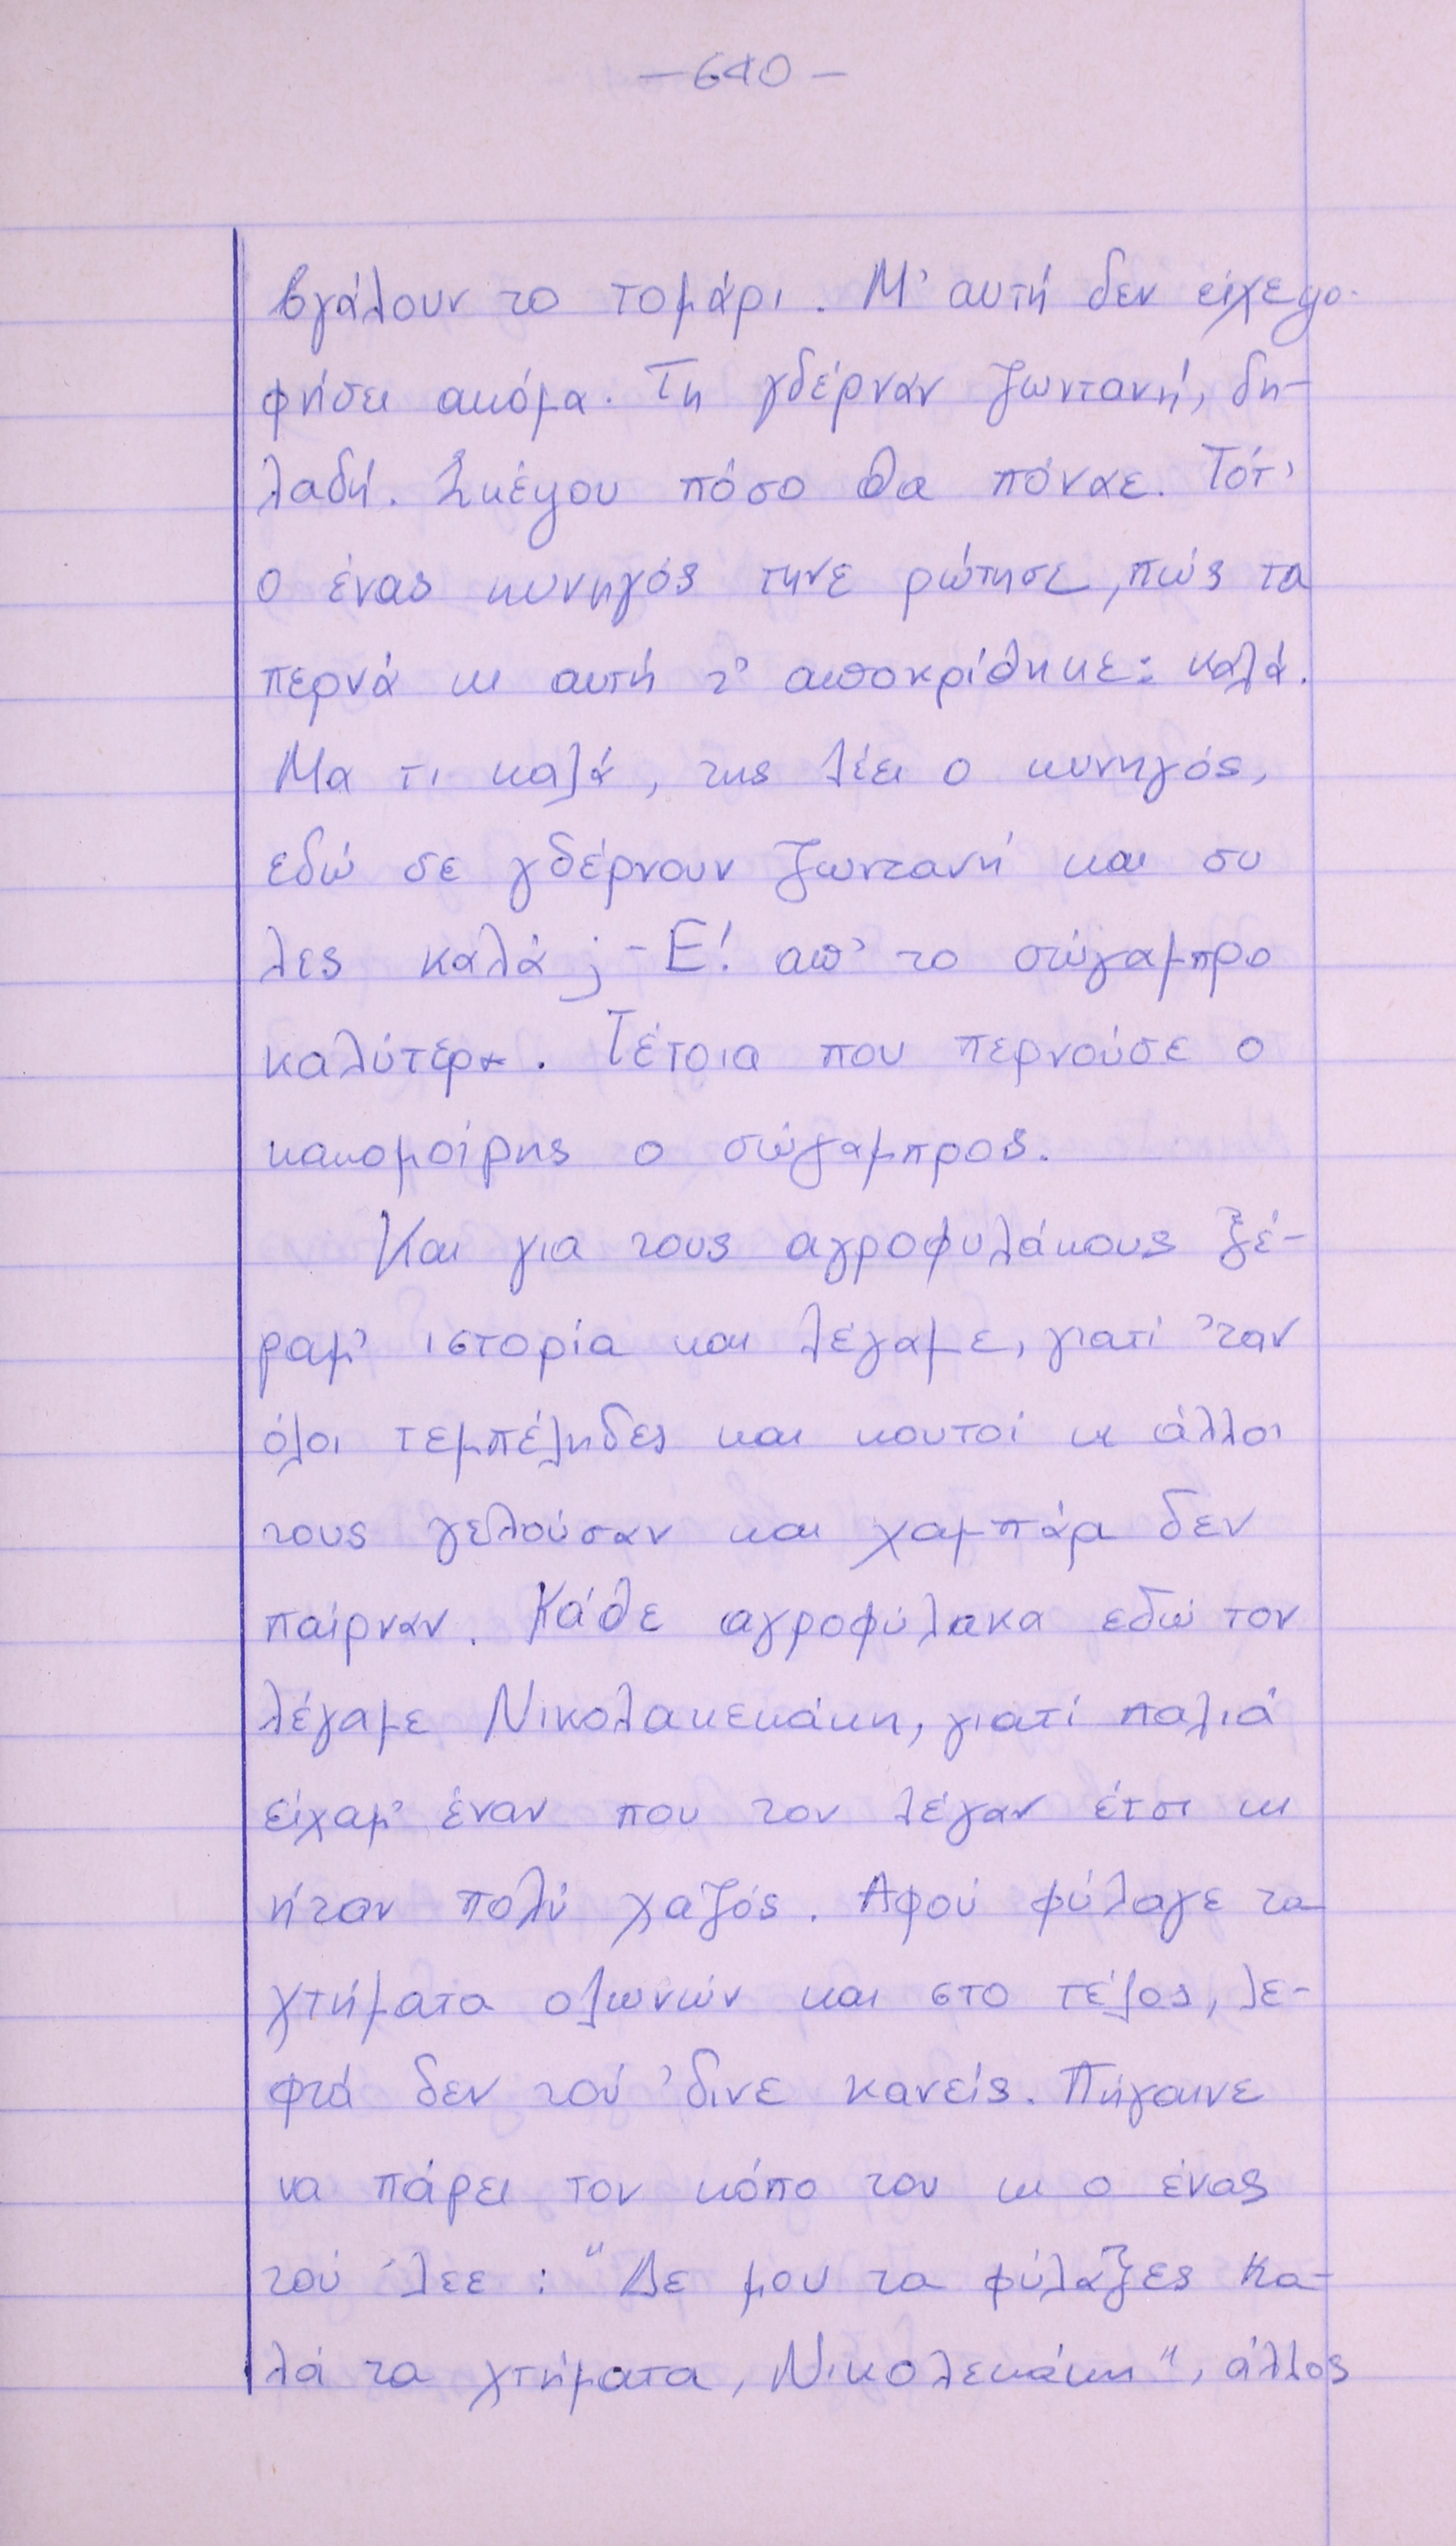 -640-
βγάλουν το τομάρι. Μ' αυτή δεν είχε ψο-
φήσει ακόμα. Τη γδέρναν ζωντανή, δη-
λαδή. Σκέψου πόσο θα πόναε. Τότ'
ο ένας κυνηγός τηνε ρώτησε, πώς τα
περνά κι αυτή τ' αποκρίθηκε: καλά.
Μα τι καλά, της λέει ο κυνηγός,
εδώ σε γδέρνουν ζωντανή και συ
λες καλά; - Ε! απ' το σώγαμπρο
καλύτερα. Τέτοια που περνούσε ο
κακομοίρης ο σώγαμπρος.
Και για τους αγροφυλάκους ξέ-
ραμ' ιστορία και λέγαμε, γιατί 'ταν
όλοι τεμπέληδες και κουτοί κι άλλοι
τους γελούσαν και χαμπάρι δεν
παίρναν. Κάθε αγροφύλακα εδώ τον
λέγαμε Νικολακεκάκη, γιατί παλιά
είχαμ' έναν που τον λέγαν έτσι κι
ήταν πολύ χαζός. Αφού φύλαγε τα
χτήματα ολωνών και στο τέλος, λε-
φτά δεν τού 'δινε κανείς. Πήγαινε
να πάρει τον κόπο του κι ο ένας
τού 'λεε: "Δε μου τα φύλαξες κα-
λά τα χτήματα, Νικολεκάκη", άλλος